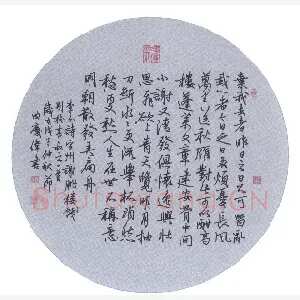 棄我去者昨日之日不可留亂
我心者今日之日多煩憂長風
萬里送秋雁對此可以酣高
樓蓬萊文章建安骨中間
小謝又清發俱懷逸興壯
思飛欲上青天覽明月抽
刀斷水水更流舉杯消愁
愁更愁人生在世不稱意
明朝散髮弄扁舟
李白詩宣州謝朓樓餞